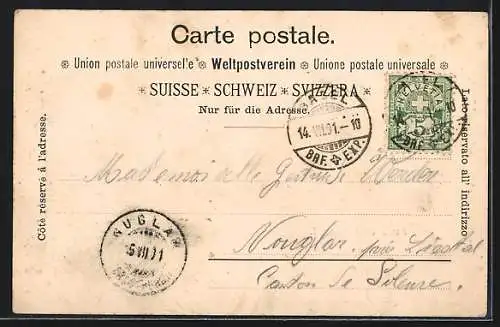 Carte postale.
※ Union postale universel'e ※ Weltpostverein ※ Unione postale universale ※
* SUISSE * SCHWEIZ * SVIZZERA *
Nur für die Adresse.
Côté réservé à l'adresse.
Lato riservato all' indirizzo.
HELVETIA
5
BASEL
14.VII.01.-10
BRF. EXP.
Mademoiselle Gertrude
Nouglar, près Liestal
Canton de Soleure
NUGLAR